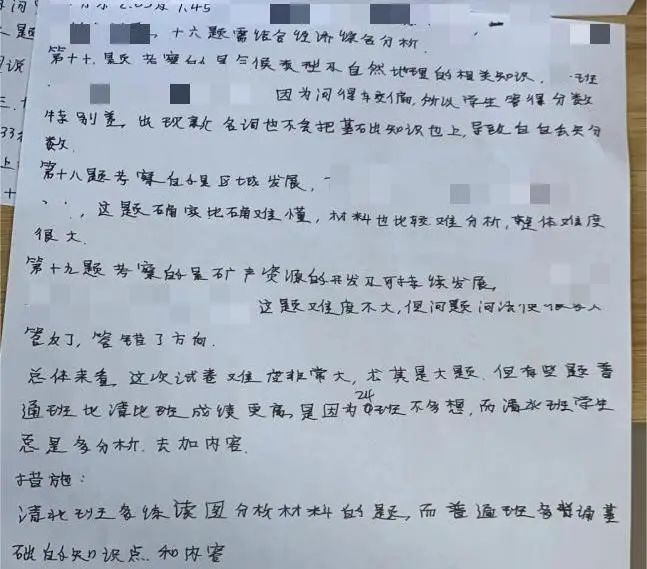 十六题需结合经济综合分析.
第十七题考察的是气候类型及自然地理的相关知识. 一班
因为问得较偏,所以学生害得分数
特别差,出现新名词也不会把基础知识也上,导致白白丢失分
数.
第十八题考察的是区域发展,
这题确实比较难懂,材料也比较难分析,整体难度
很大.
第十九题考察的是矿产资源的开发及可持续发展,
这题难度不大,但问题问法使很多人
答不了,答错了方向.
总体来看,这次试卷难度非常大,尤其是大题.但有些题普
通班比清北班成绩更高,是因为24班不多想,而清北班学生
总是多分析.去加内容.
措施:
清北班多练读图分析材料的题,而普通班多背诵基
础的知识点.和内容